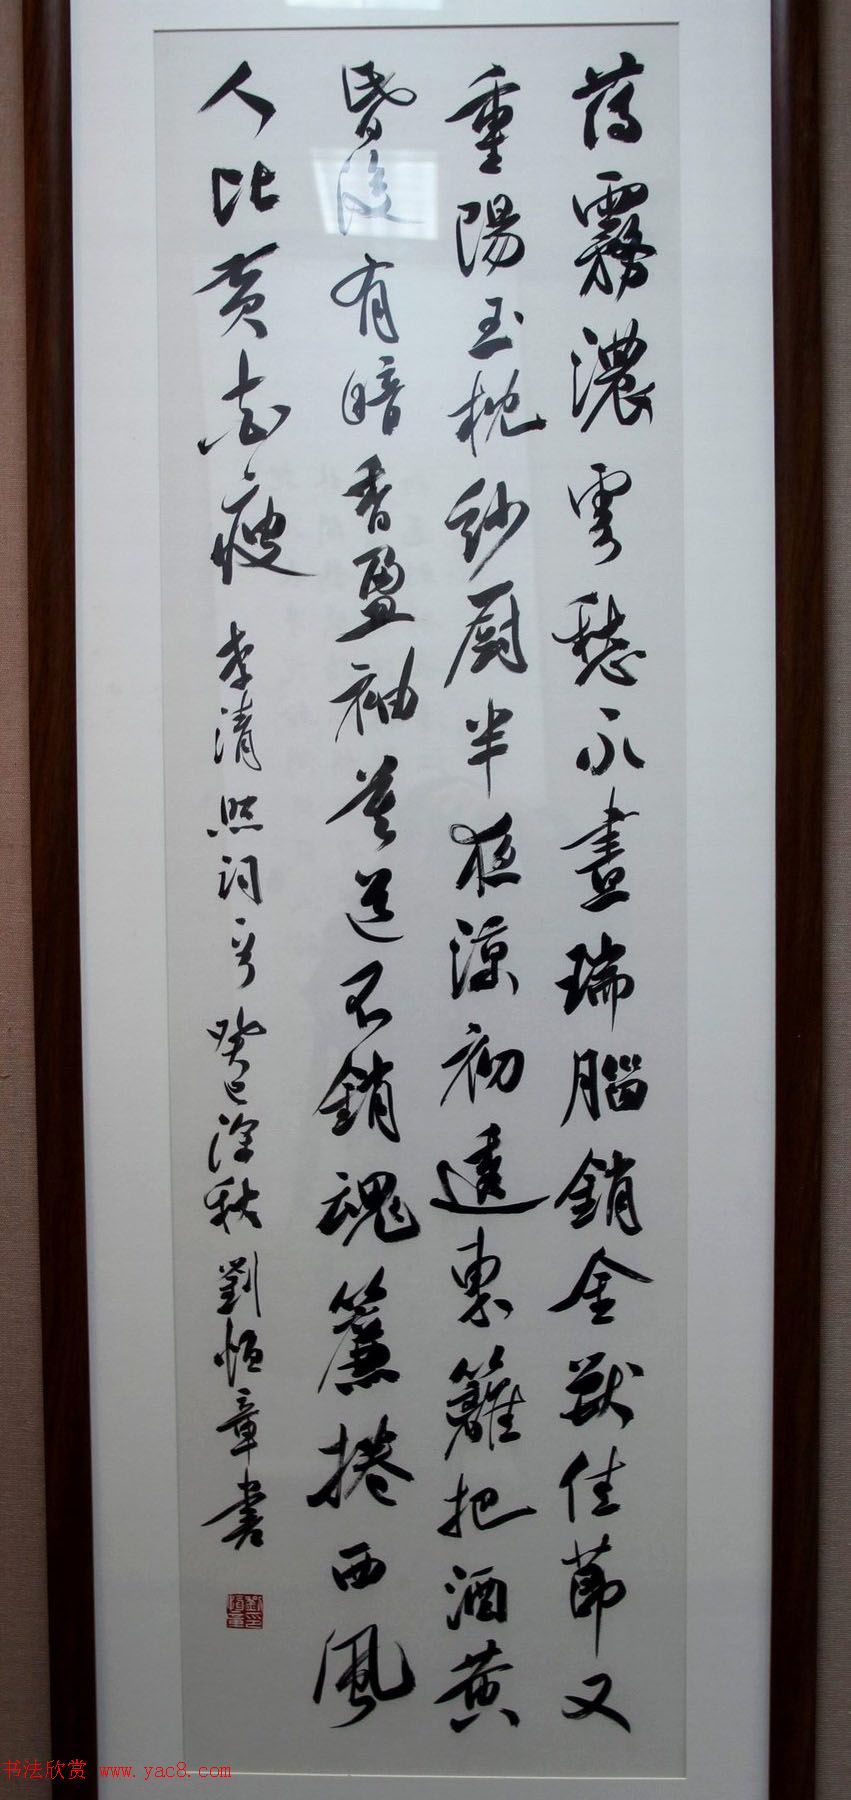 薄霧濃雲愁永晝瑞腦銷金獸佳節又
重陽玉枕紗厨半夜涼初透東籬把酒黄
昏後有暗香盈袖莫道不銷魂簾捲西風
人比黄花瘦 李清照詞一首 癸巳深秋 劉恒章書
书法欣赏 www.yac8.com